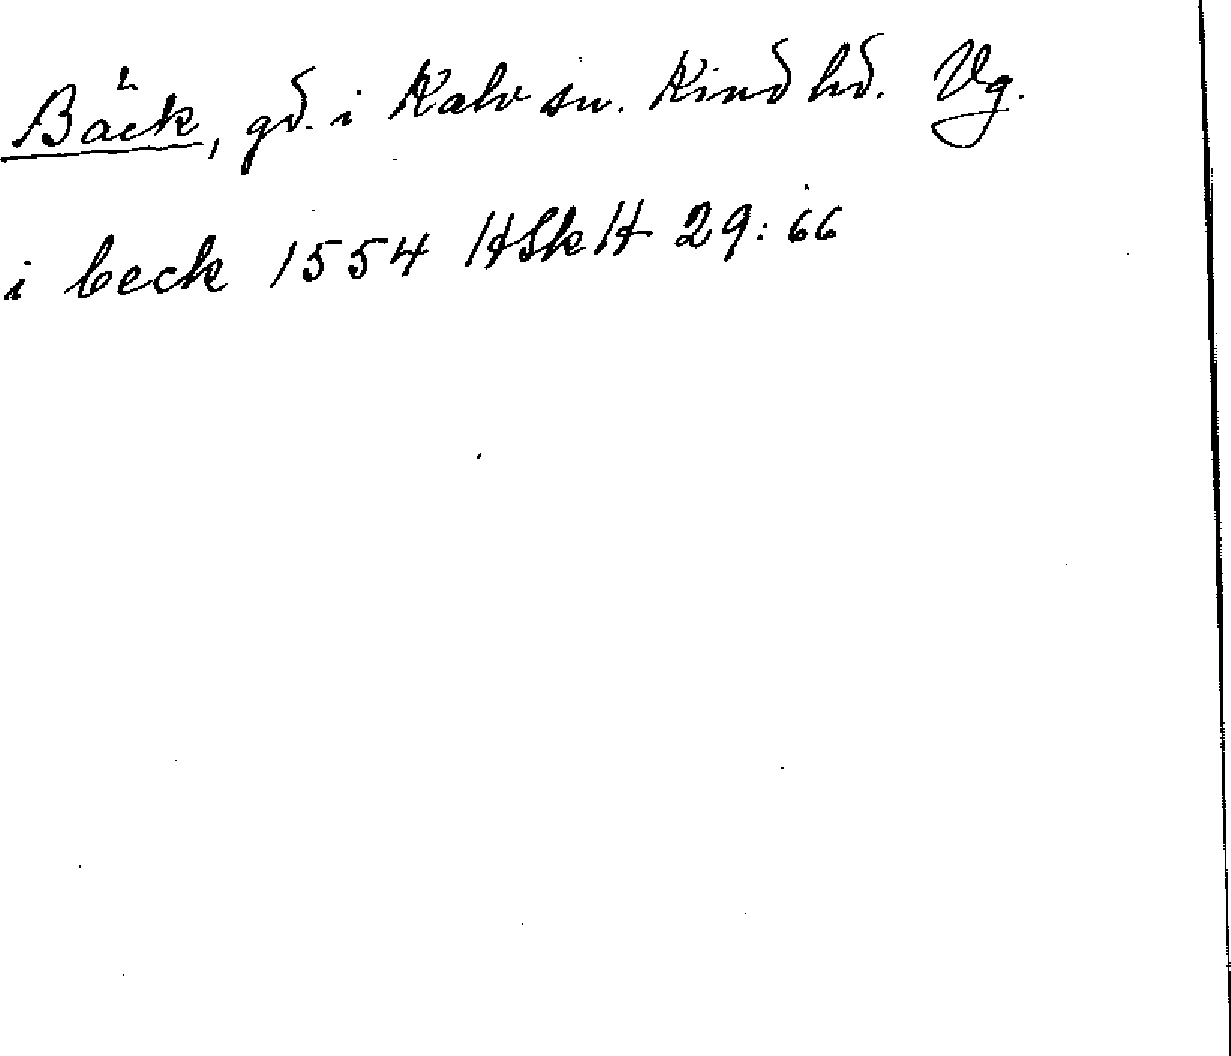 Bäck, gd. i Kalv sn. Kind hd. Vg.
i beck 1554 HSkH 29:66